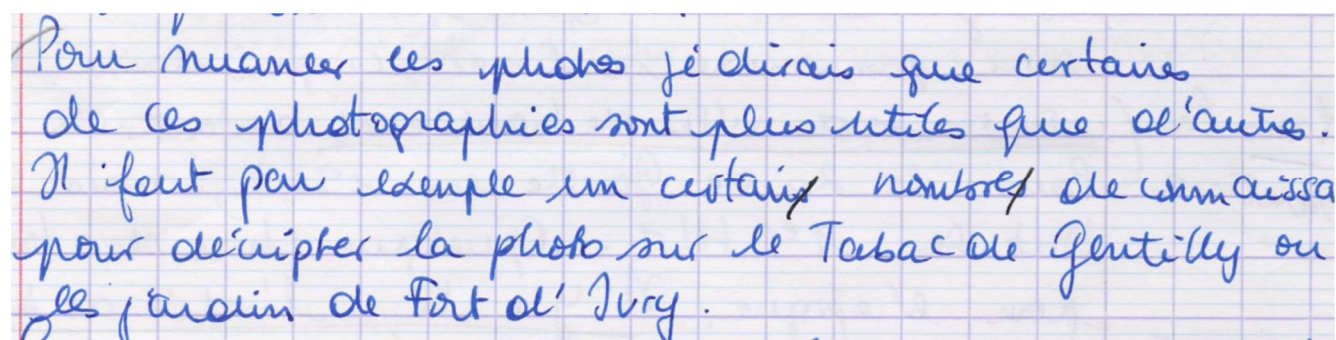 Pour nuancer ces photos je dirais que certaines
de ces photographies sont plus utiles que d'autres.
Il faut par exemple un certain nombre de connaissa
pour décripter la photo sur le Tabac de Gentilly ou
les jardin de Fort d'Ivry.